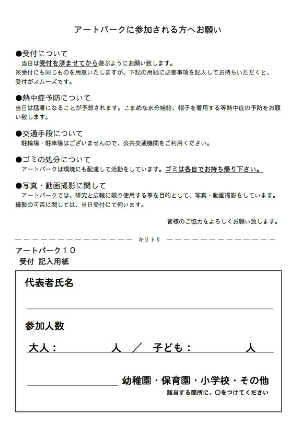 アートパークに参加される方へお願い
●受付について
当日は受付を済ませてから遊ぶようにお願い致します。
※受付にも同じものを用意いたしますが、下記の用紙に必要事項を記入してお持ちいただくと、
受付がスムーズです。
●熱中症予防について
当日は猛暑になることが予想されます。こまめな水分補給、帽子を着用する等熱中症の予防をお願
い致します。
●交通手段について
駐輪場・駐車場はございませんので、公共交通機関をご利用ください。
●ゴミの処分について
アートパークは環境にも配慮して活動をしています。ゴミは各自でお持ち帰り下さい。
●写真・動画撮影に関して
アートパークでは、研究と広報に限り使用する事を目的として、写真・動画撮影をしています。
撮影の可否に関しては、当日受付にて伺います。
皆様のご協力をよろしくお願い致します。
キリトリ
アートパーク10
受付 記入用紙
代表者氏名
参加人数
大人： 人 ／ 子ども： 人
幼稚園・保育園・小学校・その他
該当する箇所に、○をつけてください